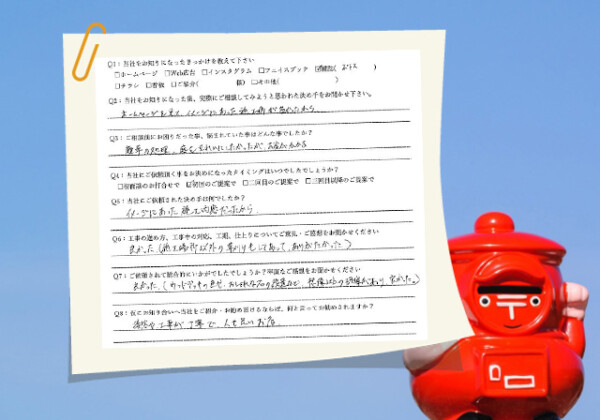 Q1：当社をお知りになったきっかけを教えて下さい
□ホームページ □Web広告 □インスタグラム □フェイスブック
□チラシ □看板 □ご紹介( 様) □その他( )
Q2：当社をお知りになった後、実際にご相談してみようと思われた決め手をお聞かせ下さい。
ホームページを見て、イメージにあった施工例があったから
Q3：ご相談前にお困りだった事、悩まれていた事はどんな事でしたか？
Q4：当社にご依頼頂く事をお決めになったタイミングはいつでしたでしょうか？
□初面談のお打合せで ☑初回のご提案で □二回目のご提案で □三回目以降のご提案で
Q5：当社にご依頼された決め手は何でしたか？
イメージにあった施工内容だったから
Q6：工事の進め方、工事中の対応、工期、仕上りについてご意見・ご感想をお聞かせください
良かった（施工場所以外の草刈りもしてあって、ありがたかった）
Q7：ご依頼されて総合的にいかがでしたでしょうか？率直なご感想をお聞かせください
良かった。
Q8：仮にお知り合いへ当社をご紹介・お勧め頂けるならば、何と言ってお勧めされますか？
工事が丁寧で 人も良いお店
〒